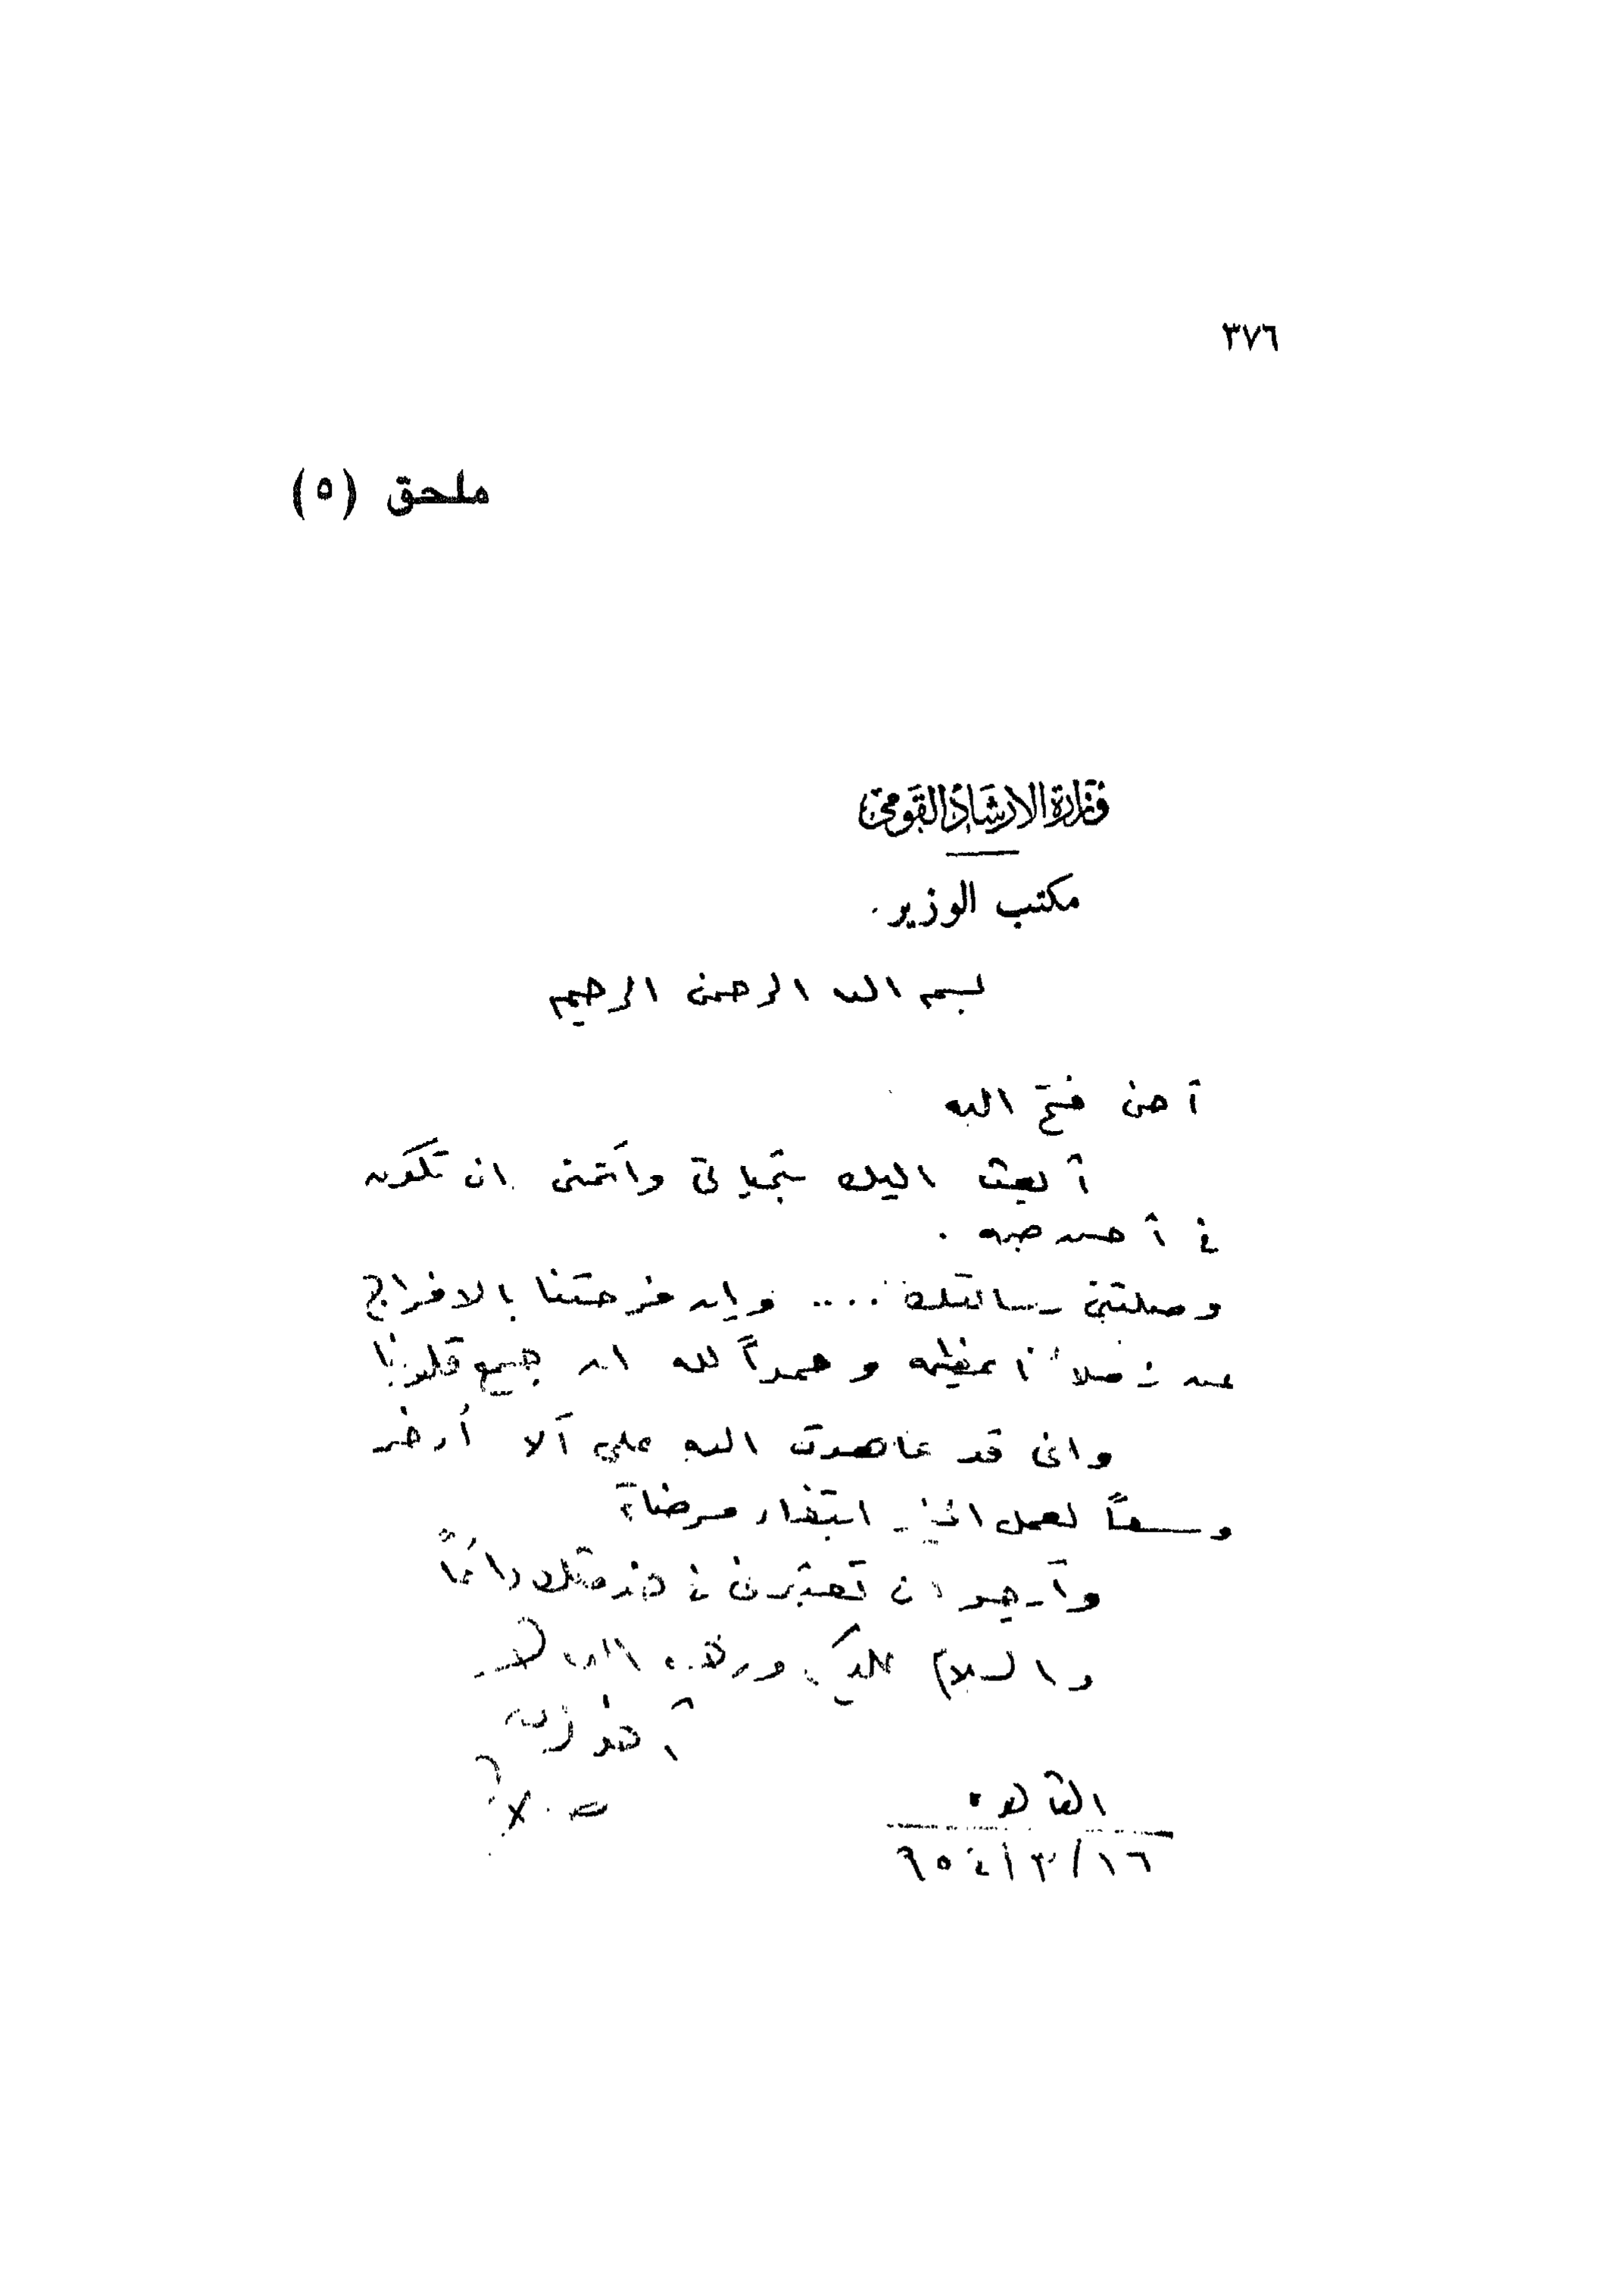 ٣٧٦
ملحق (٥)
وزارة الارشاد القومى
مكتب الوزير
بسم الله الرحمن الرحيم
أخى فتح الله
أبعث اليك بتحياتى وأتمنى ان تكون
فى أحسن صحه .
وصلتنى رسالتك .... وإن فرحتنا بالافراج
عن زملائنا عظيمه وحمداً لله ان جمع قلوبنا
وانى قد عاهدت الله على ألا أدخر
وسعاً لعمل الخير ابتغاء مرضاته
وأرجو ان تعتبرنى فى خدمتك دائماً
والسلام عليكم ورحمة الله
أخوك
القاهره
٩٥٤/٣/١٦